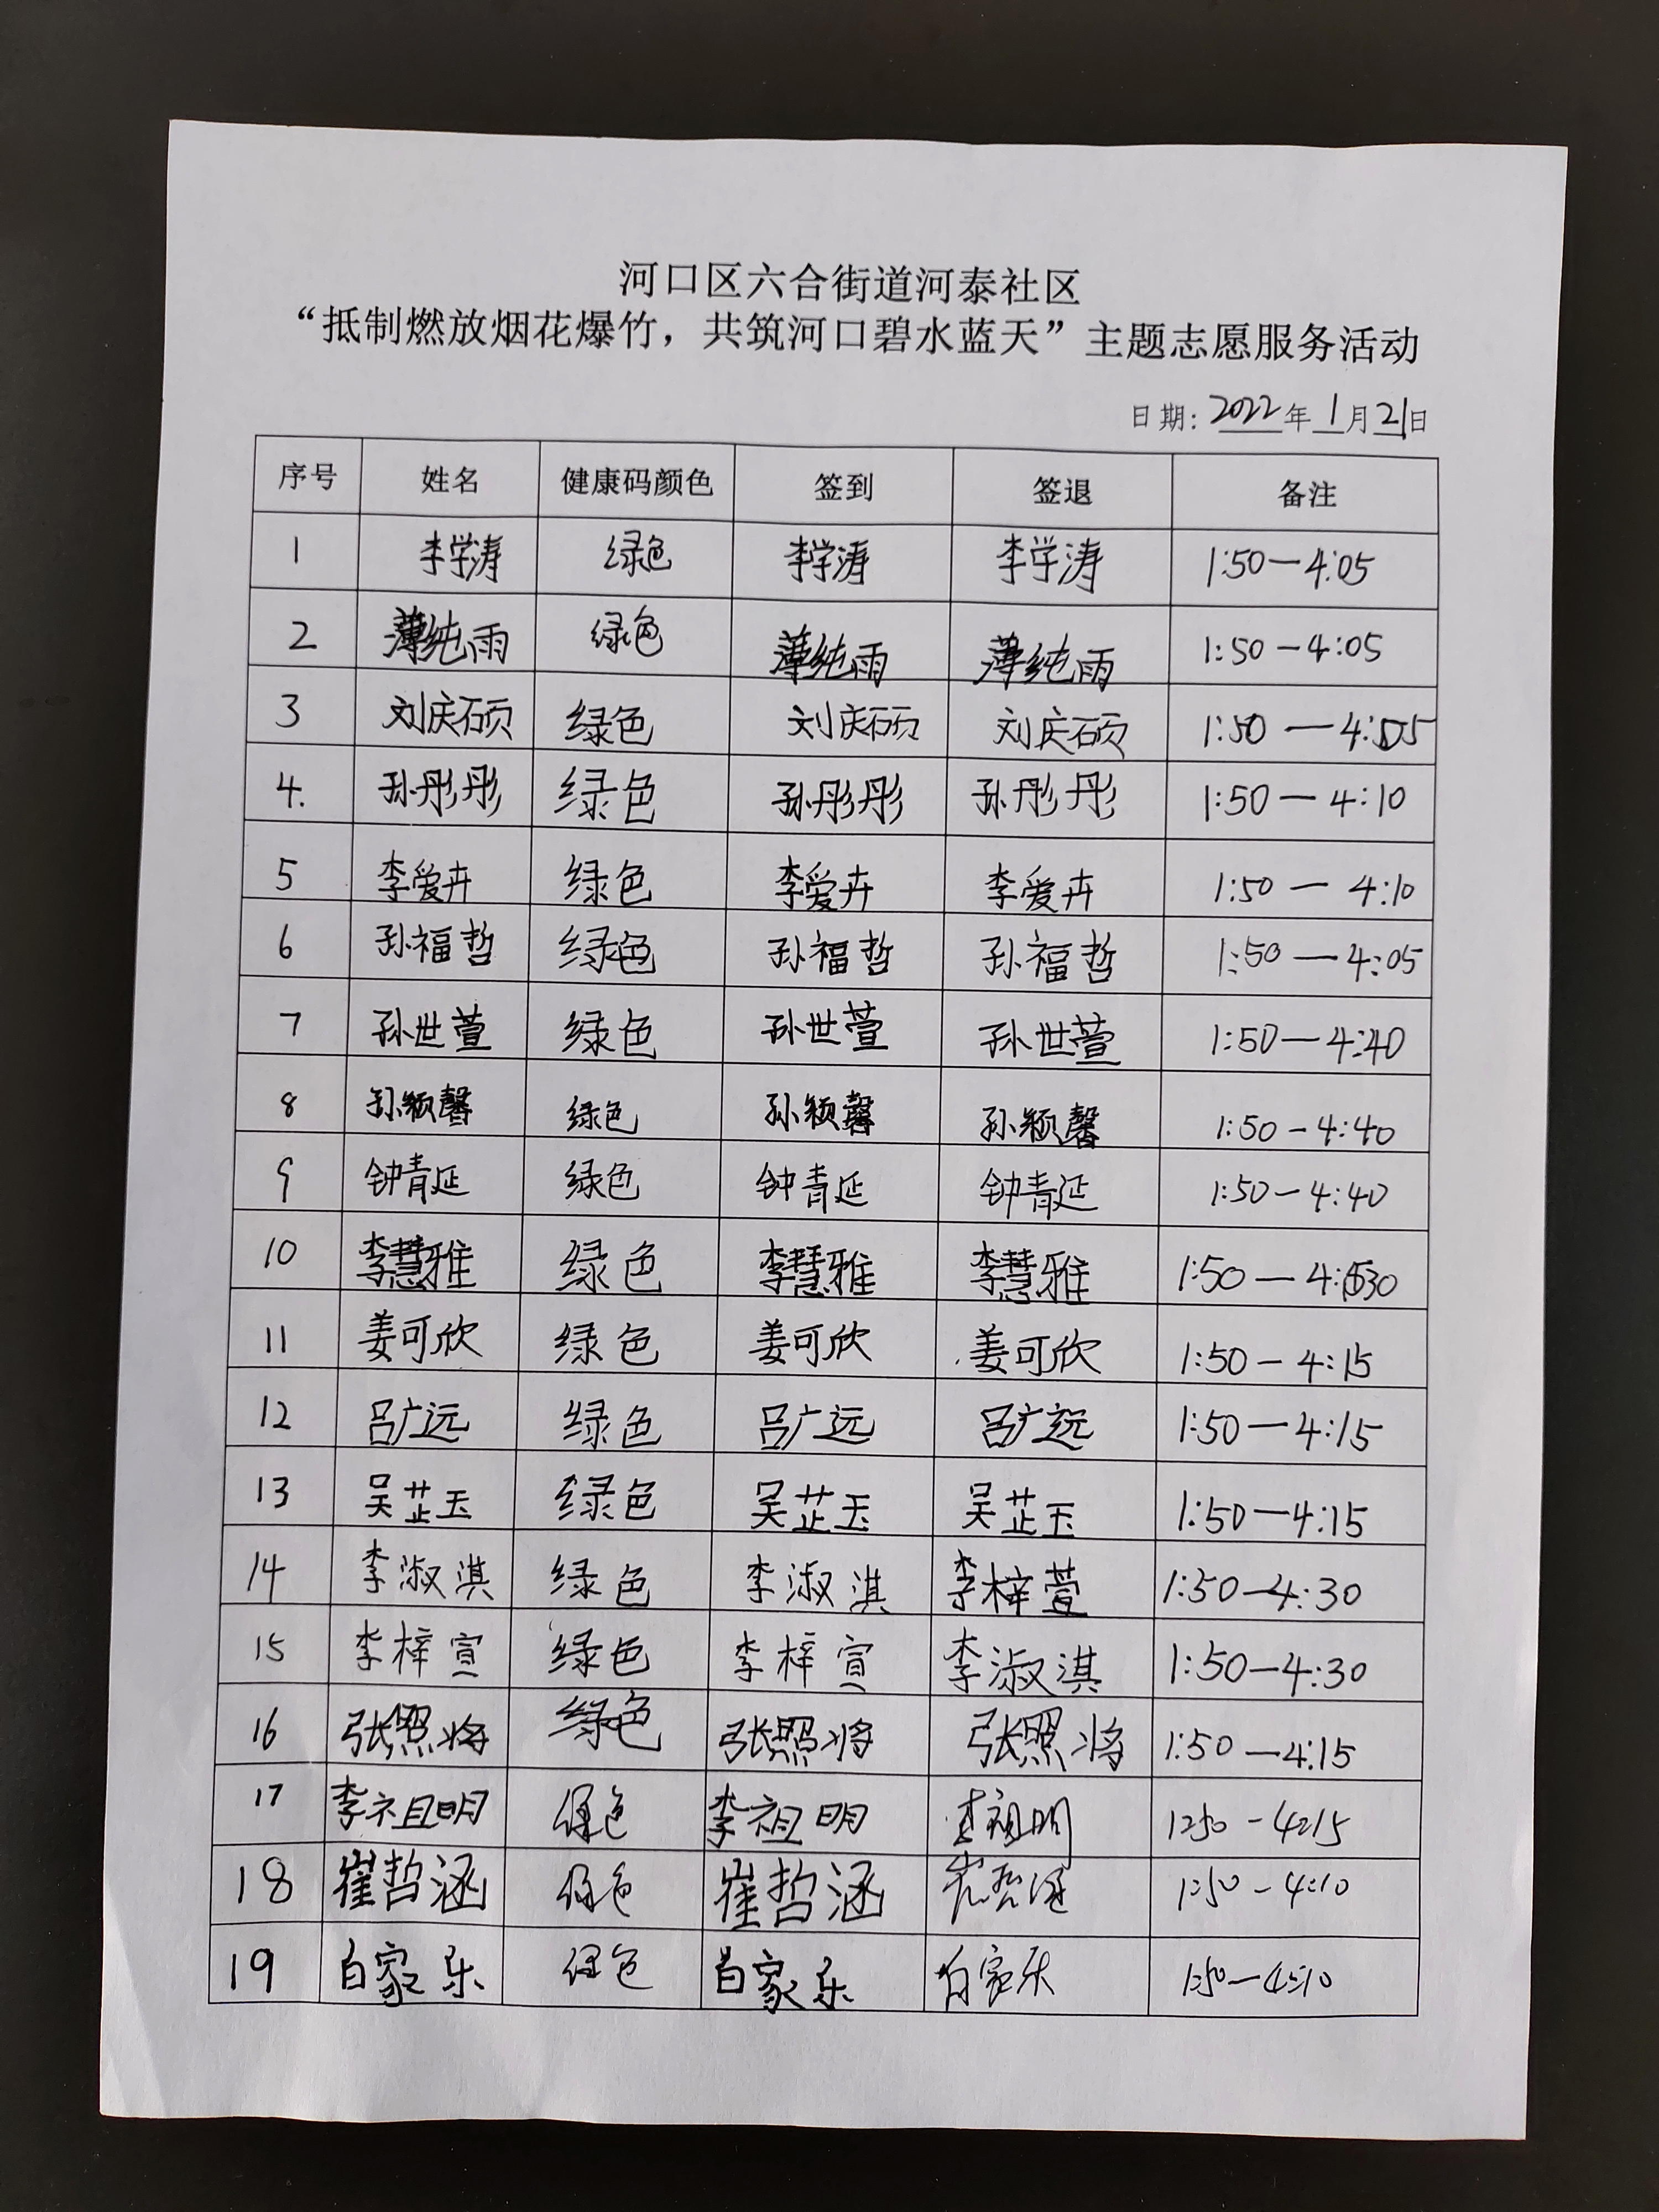 河口区六合街道河泰社区
“抵制燃放烟花爆竹，共筑河口碧水蓝天”主题志愿服务活动
日期：2022年1月21日
序号 姓名 健康码颜色 签到 签退 备注
1 李学涛 绿色 李学涛 李学涛 1:50—4:05
2 薄纯雨 绿色 薄纯雨 薄纯雨 1:50—4:05
3 刘庆硕 绿色 刘庆硕 刘庆硕 1:50—4:05
4. 孙彤彤 绿色 孙彤彤 孙彤彤 1:50—4:10
5 李爱卉 绿色 李爱卉 李爱卉 1:50—4:10
6 孙福哲 绿色 孙福哲 孙福哲 1:50—4:05
7 孙世萱 绿色 孙世萱 孙世萱 1:50—4:40
8 孙颖馨 绿色 孙颖馨 孙颖馨 1:50-4:40
9 钟青延 绿色 钟青延 钟青延 1:50-4:40
10 李慧雅 绿色 李慧雅 李慧雅 1:50—4:30
11 姜可欣 绿色 姜可欣 姜可欣 1:50—4:15
12 吕广远 绿色 吕广远 吕广远 1:50—4:15
13 吴芷玉 绿色 吴芷玉 吴芷玉 1:50—4:15
14 李淑淇 绿色 李淑淇 李梓萱 1:50—4:30
15 李梓宣 绿色 李梓宣 李淑淇 1:50—4:30
16 张照将 绿色 张照将 张照将 1:50—4:15
17 李祖明 绿色 李祖明 李祖明 1:50-4:15
18 崔哲涵 绿色 崔哲涵 崔哲涵 1:50-4:10
19 白家乐 绿色 白家乐 白家乐 1:50—4:10